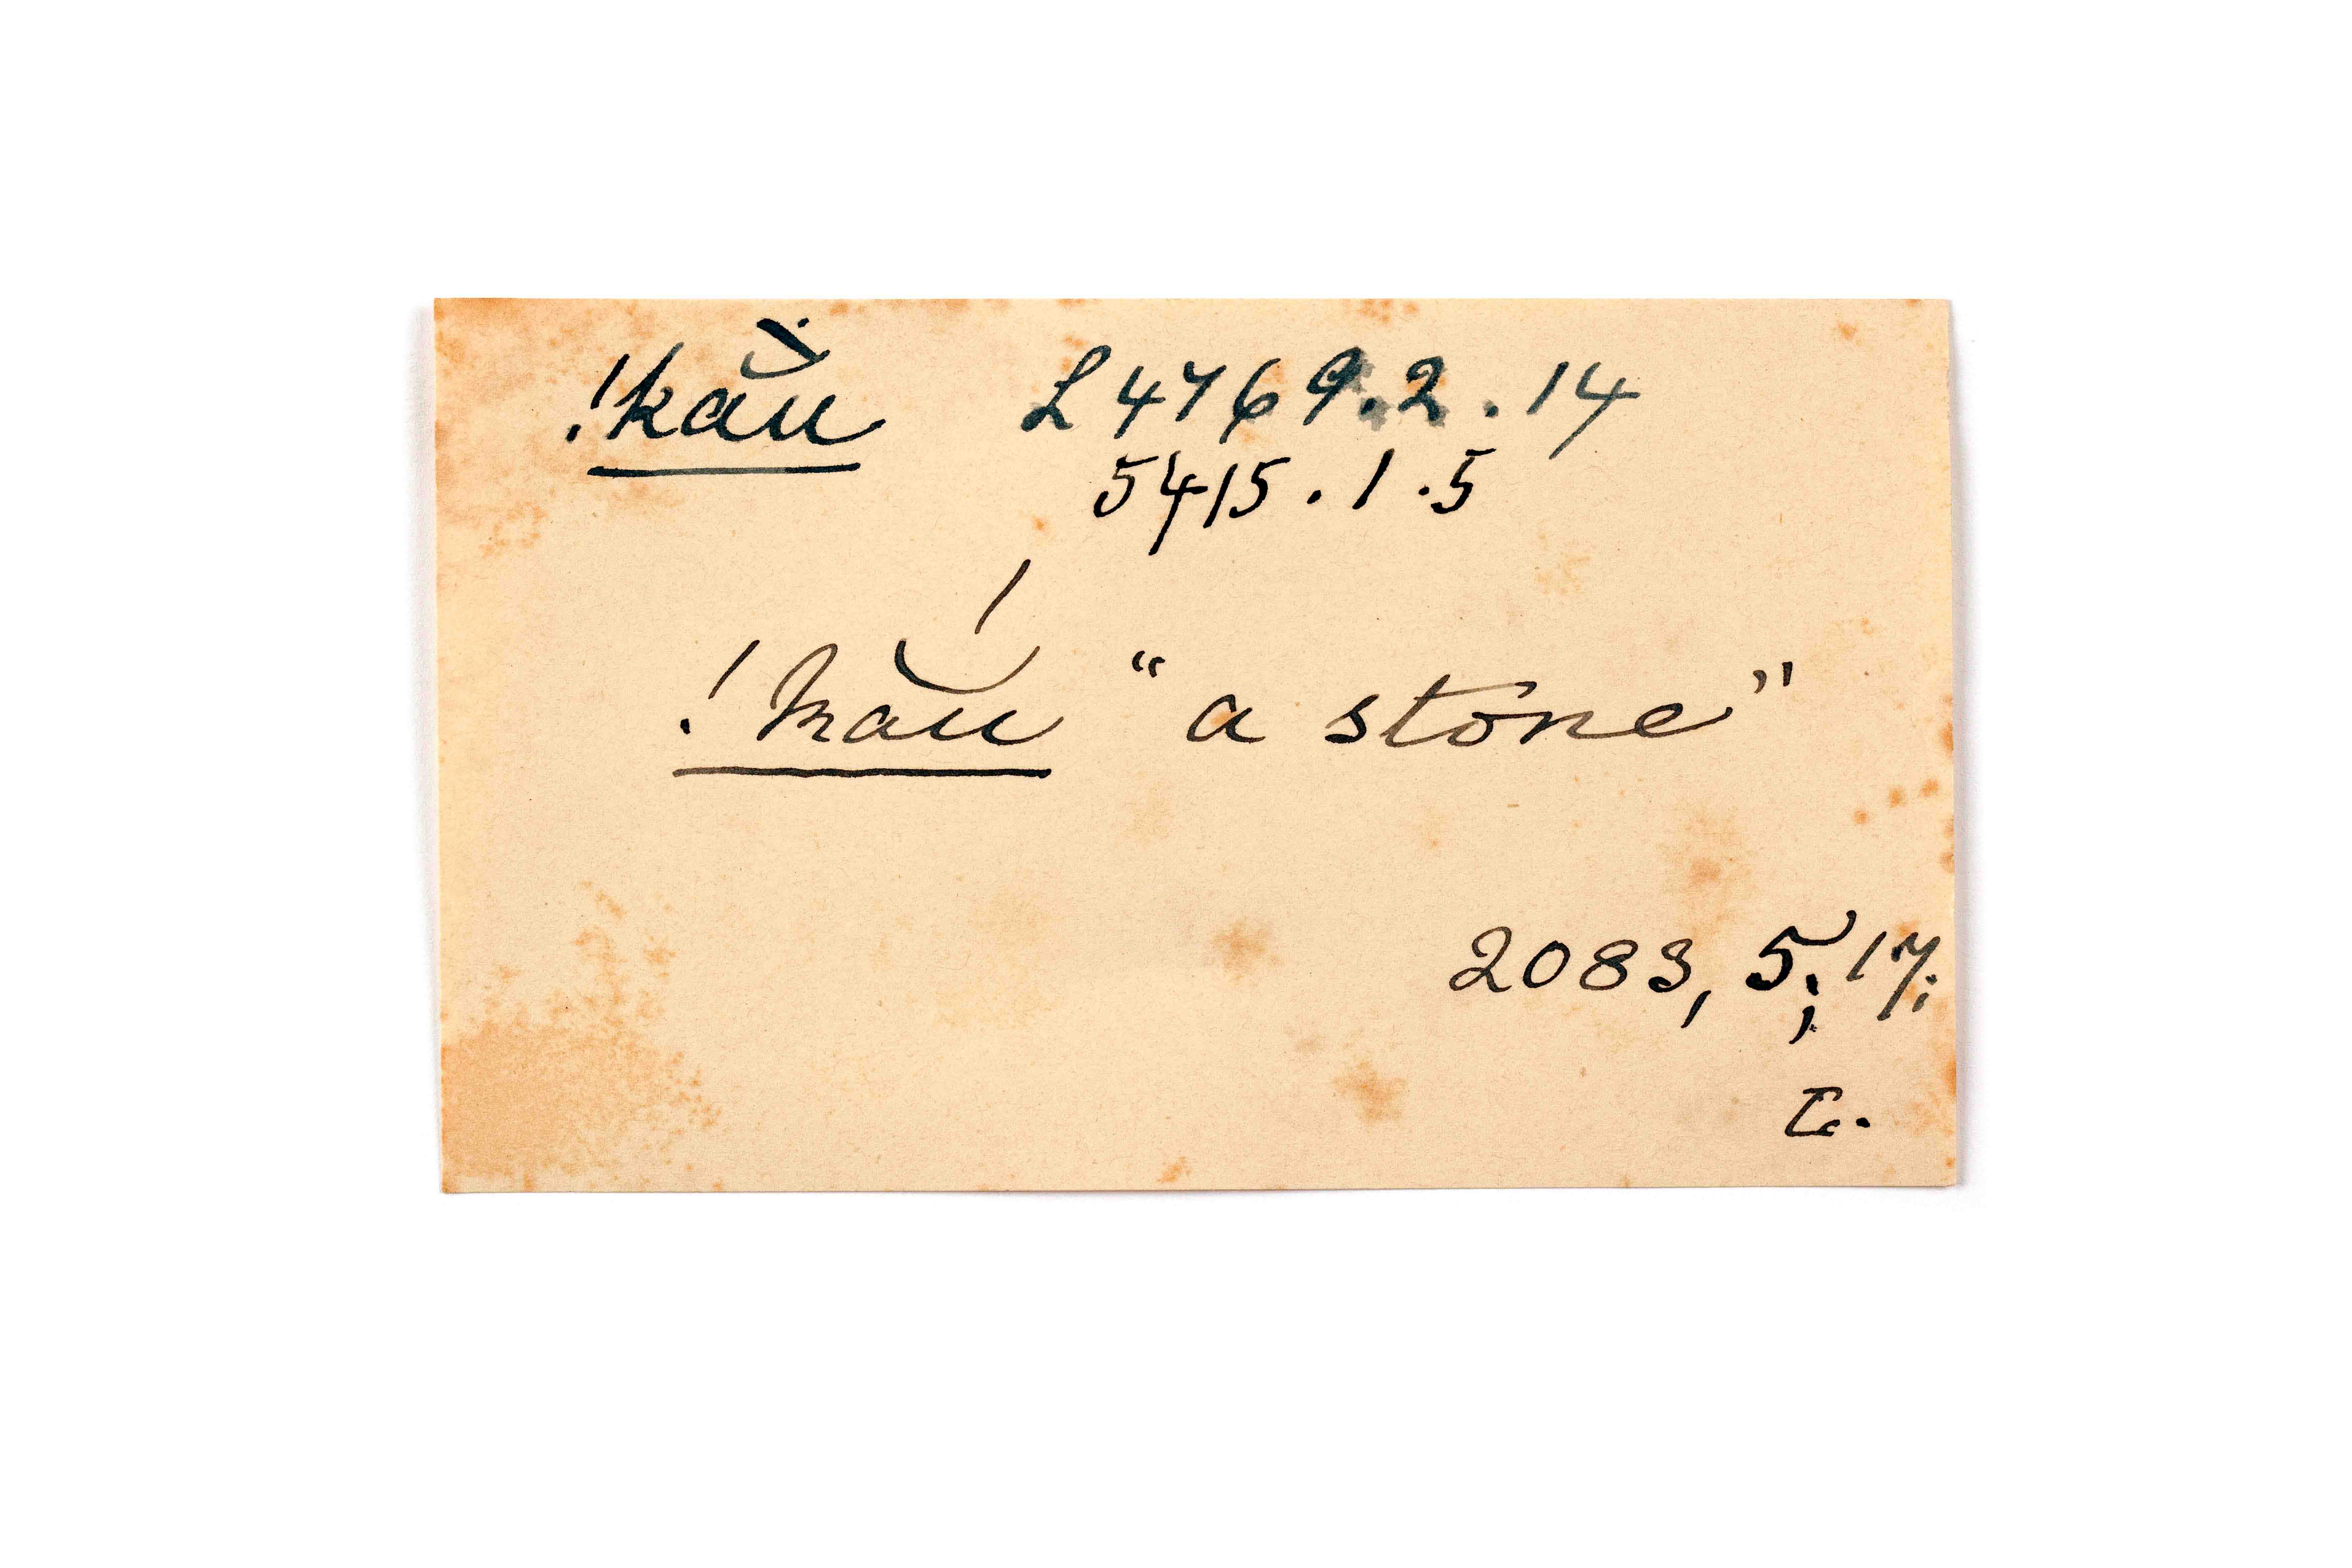 !kău L 4769.2.14
5415.1.5
!kắu "a stone"
2083, 5; 17;